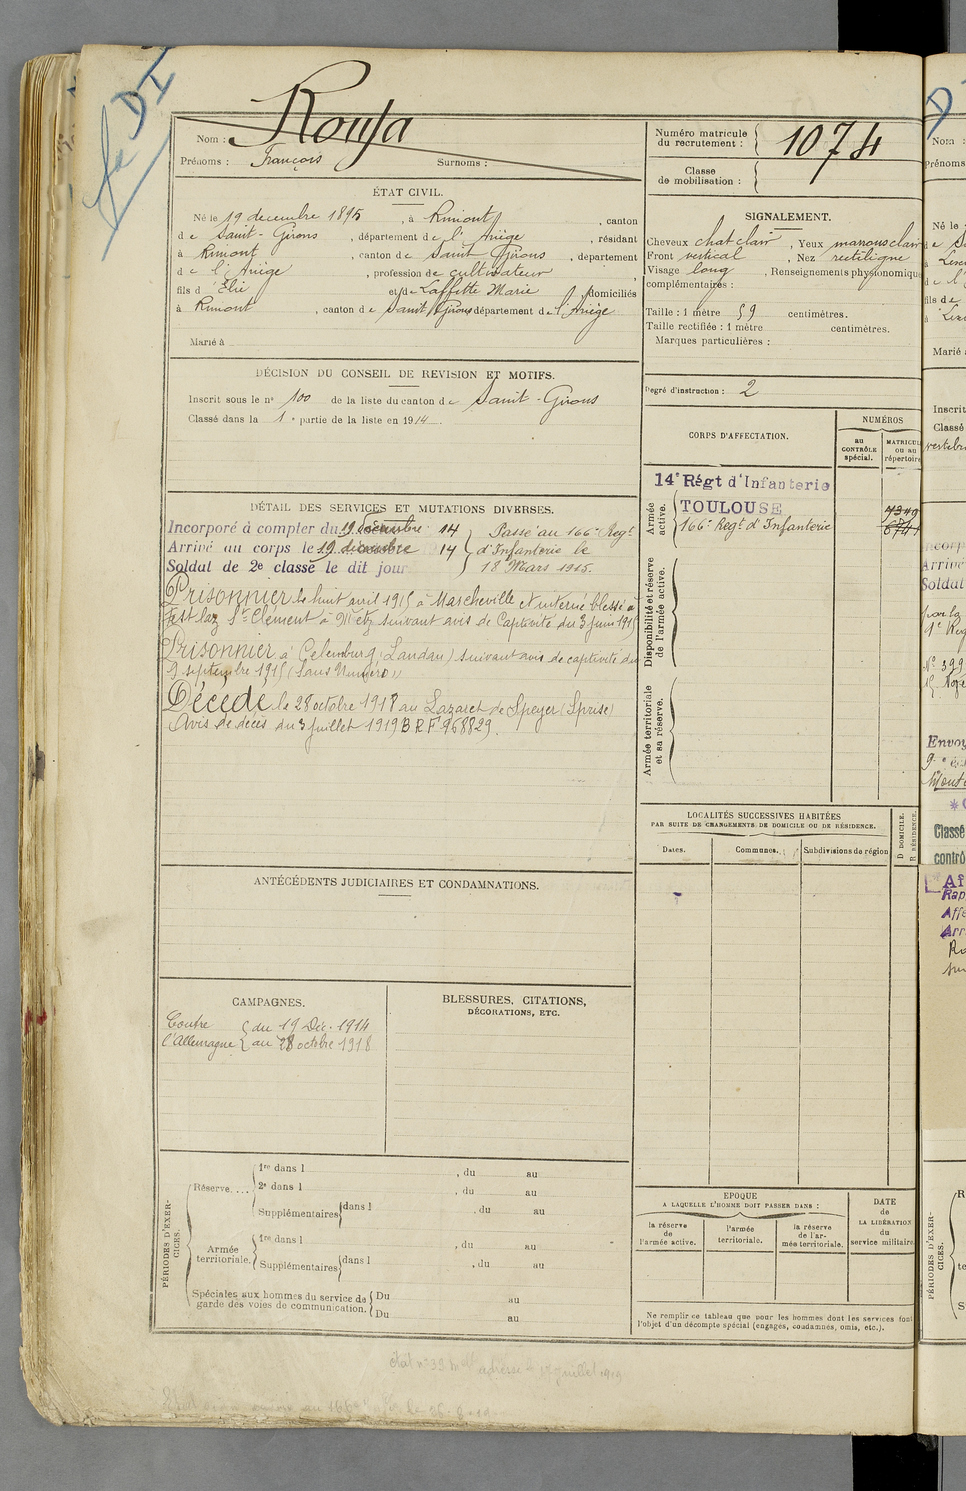 fe DI
Nom : Roufa
Prénoms : François Surnoms :
Numéro matricule du recrutement : 1074
Classe de mobilisation :
ÉTAT CIVIL.
Né le 19 decembre 1895, à Rimont, canton
de Saint-Girons, département de l'Ariège, résidant
à Rimont, canton de Saint Girons, département
de l'Ariège, profession de cultivateur
fils d Elie et de Laffitte Marie, domiciliés
à Rimont, canton de Saint Girons département de l'Ariège
Marié à
SIGNALEMENT.
Cheveux chat clair, Yeux marrons clair
Front vertical, Nez rectiligne
Visage long, Renseignements physionomiques
complémentaires :
Taille : 1 mètre 59 centimètres.
Taille rectifiée : 1 mètre centimètres.
Marques particulières :
DÉCISION DU CONSEIL DE REVISION ET MOTIFS.
Inscrit sous le n° 100 de la liste du canton de Saint-Girons
Classé dans la 1e partie de la liste en 1914.
Degré d'instruction : 2
CORPS D'AFFECTATION.
NUMÉROS
au CONTRÔLE spécial.
MATRICULE ou au répertoire
14e Régt d'Infanterie
TOULOUSE
166e Regt d'Infanterie
Armée active.
Disponibilité et réserve de l'armée active.
Armée territoriale et sa réserve.
DÉTAIL DES SERVICES ET MUTATIONS DIVERSES.
Incorporé à compter du 19 décembre 14
Arrivé au corps le 19 décembre 14
Soldat de 2e classe le dit jour
Passé au 166e Regt
d'Infanterie le
18 Mars 1915.
Prisonnier le huit avril 1915 à Marcheville et interné blessé à
Fest laz St Clément à Metz suivant avis de Captivité du 3 juin 1915
Prisonnier à Gelemburg (Landau) suivant avis de captivité du
9 septembre 1915 (Sans Numéro)
Décédé le 28 octobre 1918 au Lazaret de Speyer (Spire)
Avis de décès du 3 juillet 1919 B.R.F 968829.
LOCALITÉS SUCCESSIVES HABITÉES
PAR SUITE DE CHANGEMENTS DE DOMICILE OU DE RÉSIDENCE.
Dates.
Communes.
Subdivisions de région
D DOMICILE.
R RÉSIDENCE.
ANTÉCÉDENTS JUDICIAIRES ET CONDAMNATIONS.
CAMPAGNES.
Contre l'Allemagne
du 19 Déc. 1914
au 28 octobre 1918
BLESSURES, CITATIONS,
DÉCORATIONS, ETC.
PÉRIODES D'EXERCICES.
Réserve....
1re dans l , du au
2e dans l , du au
Supplémentaires dans l , du au
Armée territoriale.
1re dans l , du au
Supplémentaires dans l , du au
Spéciales aux hommes du service de
garde des voies de communication.
Du au
Du au
EPOQUE
A LAQUELLE L'HOMME DOIT PASSER DANS :
la réserve de l'armée active.
l'armée territoriale.
la réserve de l'armée territoriale.
DATE de LA LIBÉRATION du service militaire.
Ne remplir ce tableau que pour les hommes dont les services font
l'objet d'un décompte spécial (engagés, condamnés, omis, etc.).